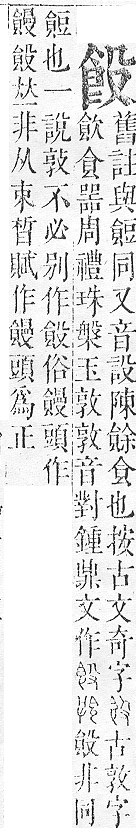 舊註與餖同又音設陳餘食也按古文奇字古敦字
飲食器周禮珠槃玉敦敦音對鍾鼎文作非同
餖也一說敦不必别作俗饅頭作
饅𠀤非从束晳賦作饅頭爲正